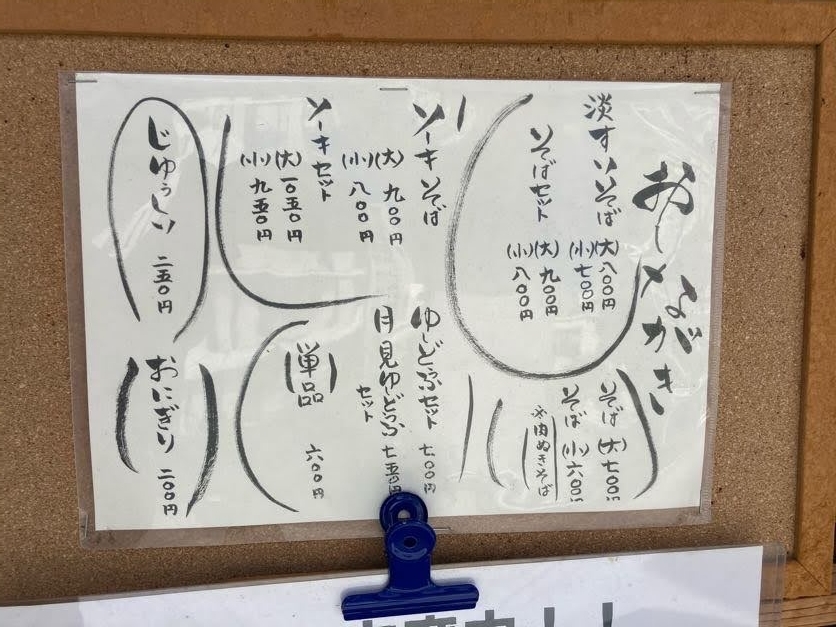 おしながき
淡すいそば (大) 八〇〇円
(小) 七〇〇円
そばセット (大) 九〇〇円
(小) 八〇〇円
そば (大) 七〇〇円
そば (小) 六〇〇円
※肉ぬきそば
ソーキそば (大) 九〇〇円
(小) 八〇〇円
ソーキセット (大) 一〇五〇円
(小) 九五〇円
ゆしどふセット 七〇〇円
月見ゆしどふ
セット 七五〇円
(単品) 六〇〇円
じゅうしい 二五〇円
おにぎり 二〇〇円